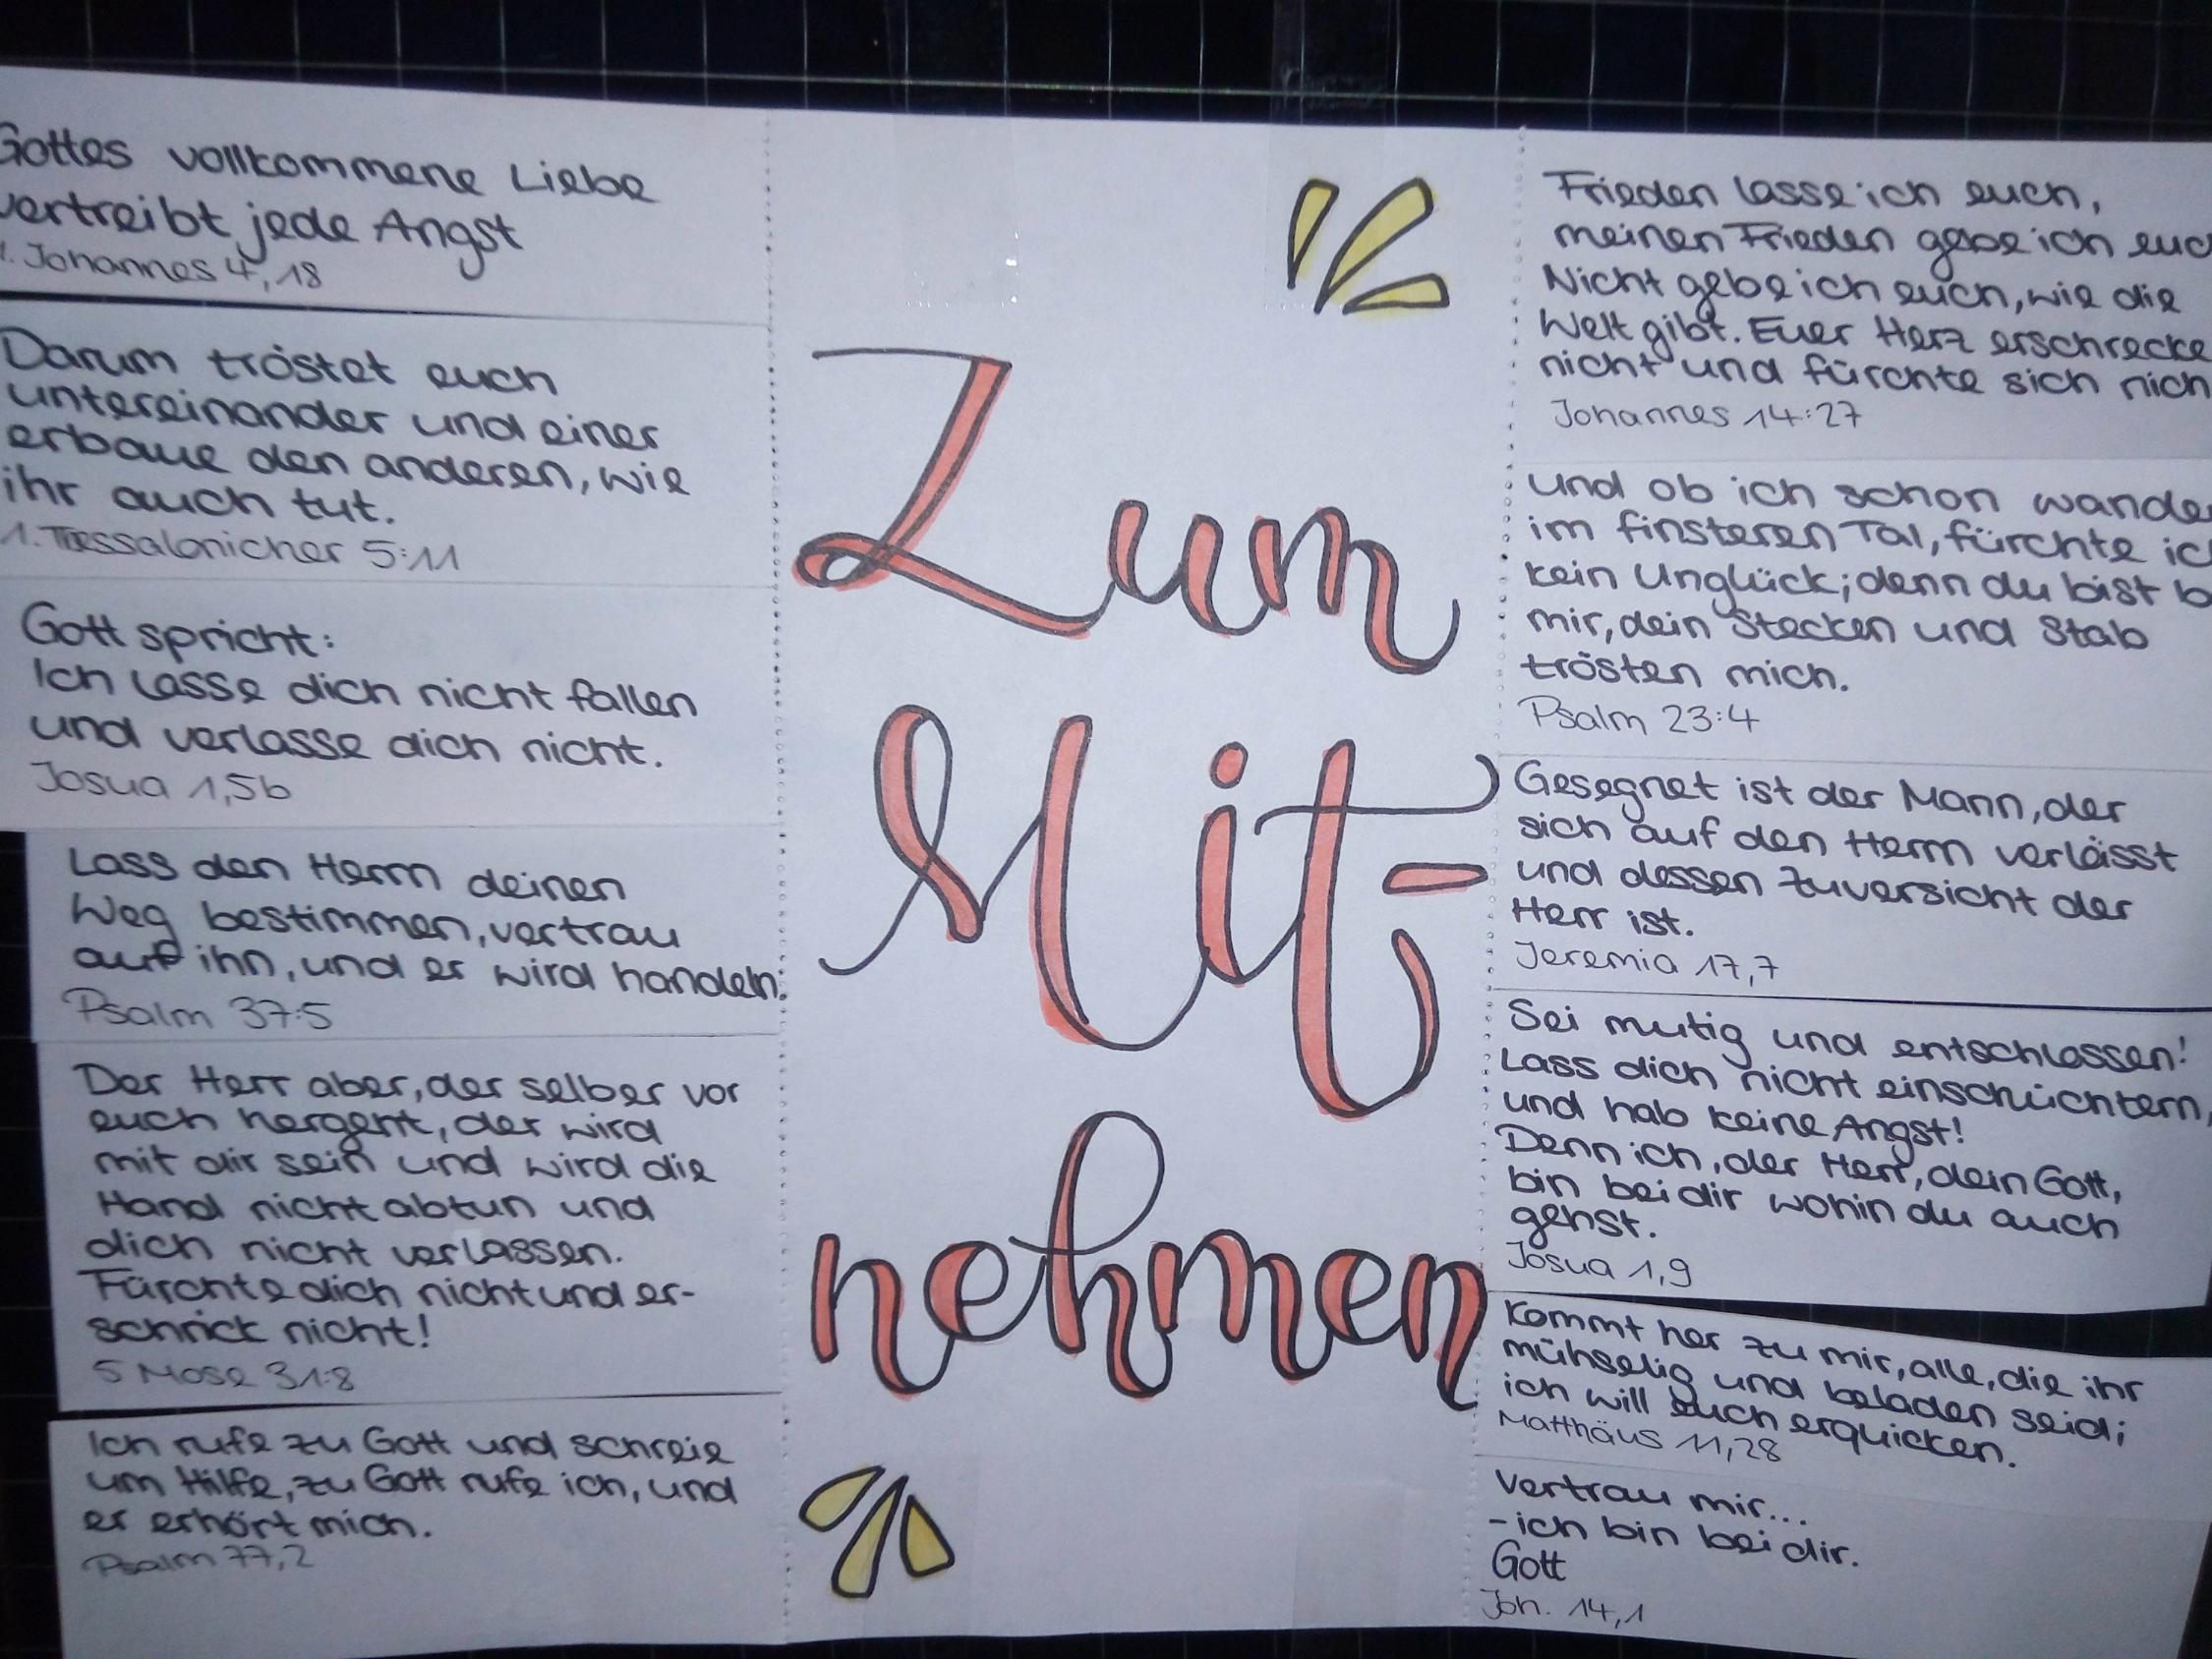 Gottes vollkommene Liebe
vertreibt jede Angst
1. Johannes 4,18
Darum tröstet euch
untereinander und einer
erbaue den anderen, wie
ihr auch tut.
1. Thessalonicher 5:11
Gott spricht:
Ich lasse dich nicht fallen
und verlasse dich nicht.
Josua 1,5b
Lass den Herrn deinen
Weg bestimmen, vertrau
auf ihn, und er wird handeln.
Psalm 37:5
Der Herr aber, der selber vor
euch hergeht, der wird
mit dir sein und wird die
Hand nicht abtun und
dich nicht verlassen.
Fürchte dich nicht und er-
schrick nicht!
5 Mose 31:8
Ich rufe zu Gott und schreie
um Hilfe, zu Gott rufe ich, und
er erhört mich.
Psalm 77,2
Zum
Mit-
nehmen
Frieden lasse ich euch,
meinen Frieden gebe ich euc
Nicht gebe ich euch, wie die
Welt gibt. Euer Herz erschrecke
nicht und fürchte sich nich
Johannes 14:27
und ob ich schon wander
im finsteren Tal, fürchte ic
kein Unglück; denn du bist b
mir, dein Stecken und Stab
trösten mich.
Psalm 23:4
Gesegnet ist der Mann, der
sich auf den Herrn verlässt
und dessen Zuversicht der
Herr ist.
Jeremia 17,7
Sei mutig und entschlossen!
Lass dich nicht einschüchtern,
und hab keine Angst!
Denn ich, der Herr, dein Gott,
bin bei dir wohin du auch
gehst.
Josua 1,9
Kommt her zu mir, alle, die ihr
mühselig und beladen seid;
ich will euch erquicken.
Matthäus 11,28
Vertrau mir...
-ich bin bei dir.
Gott
Joh. 14,1